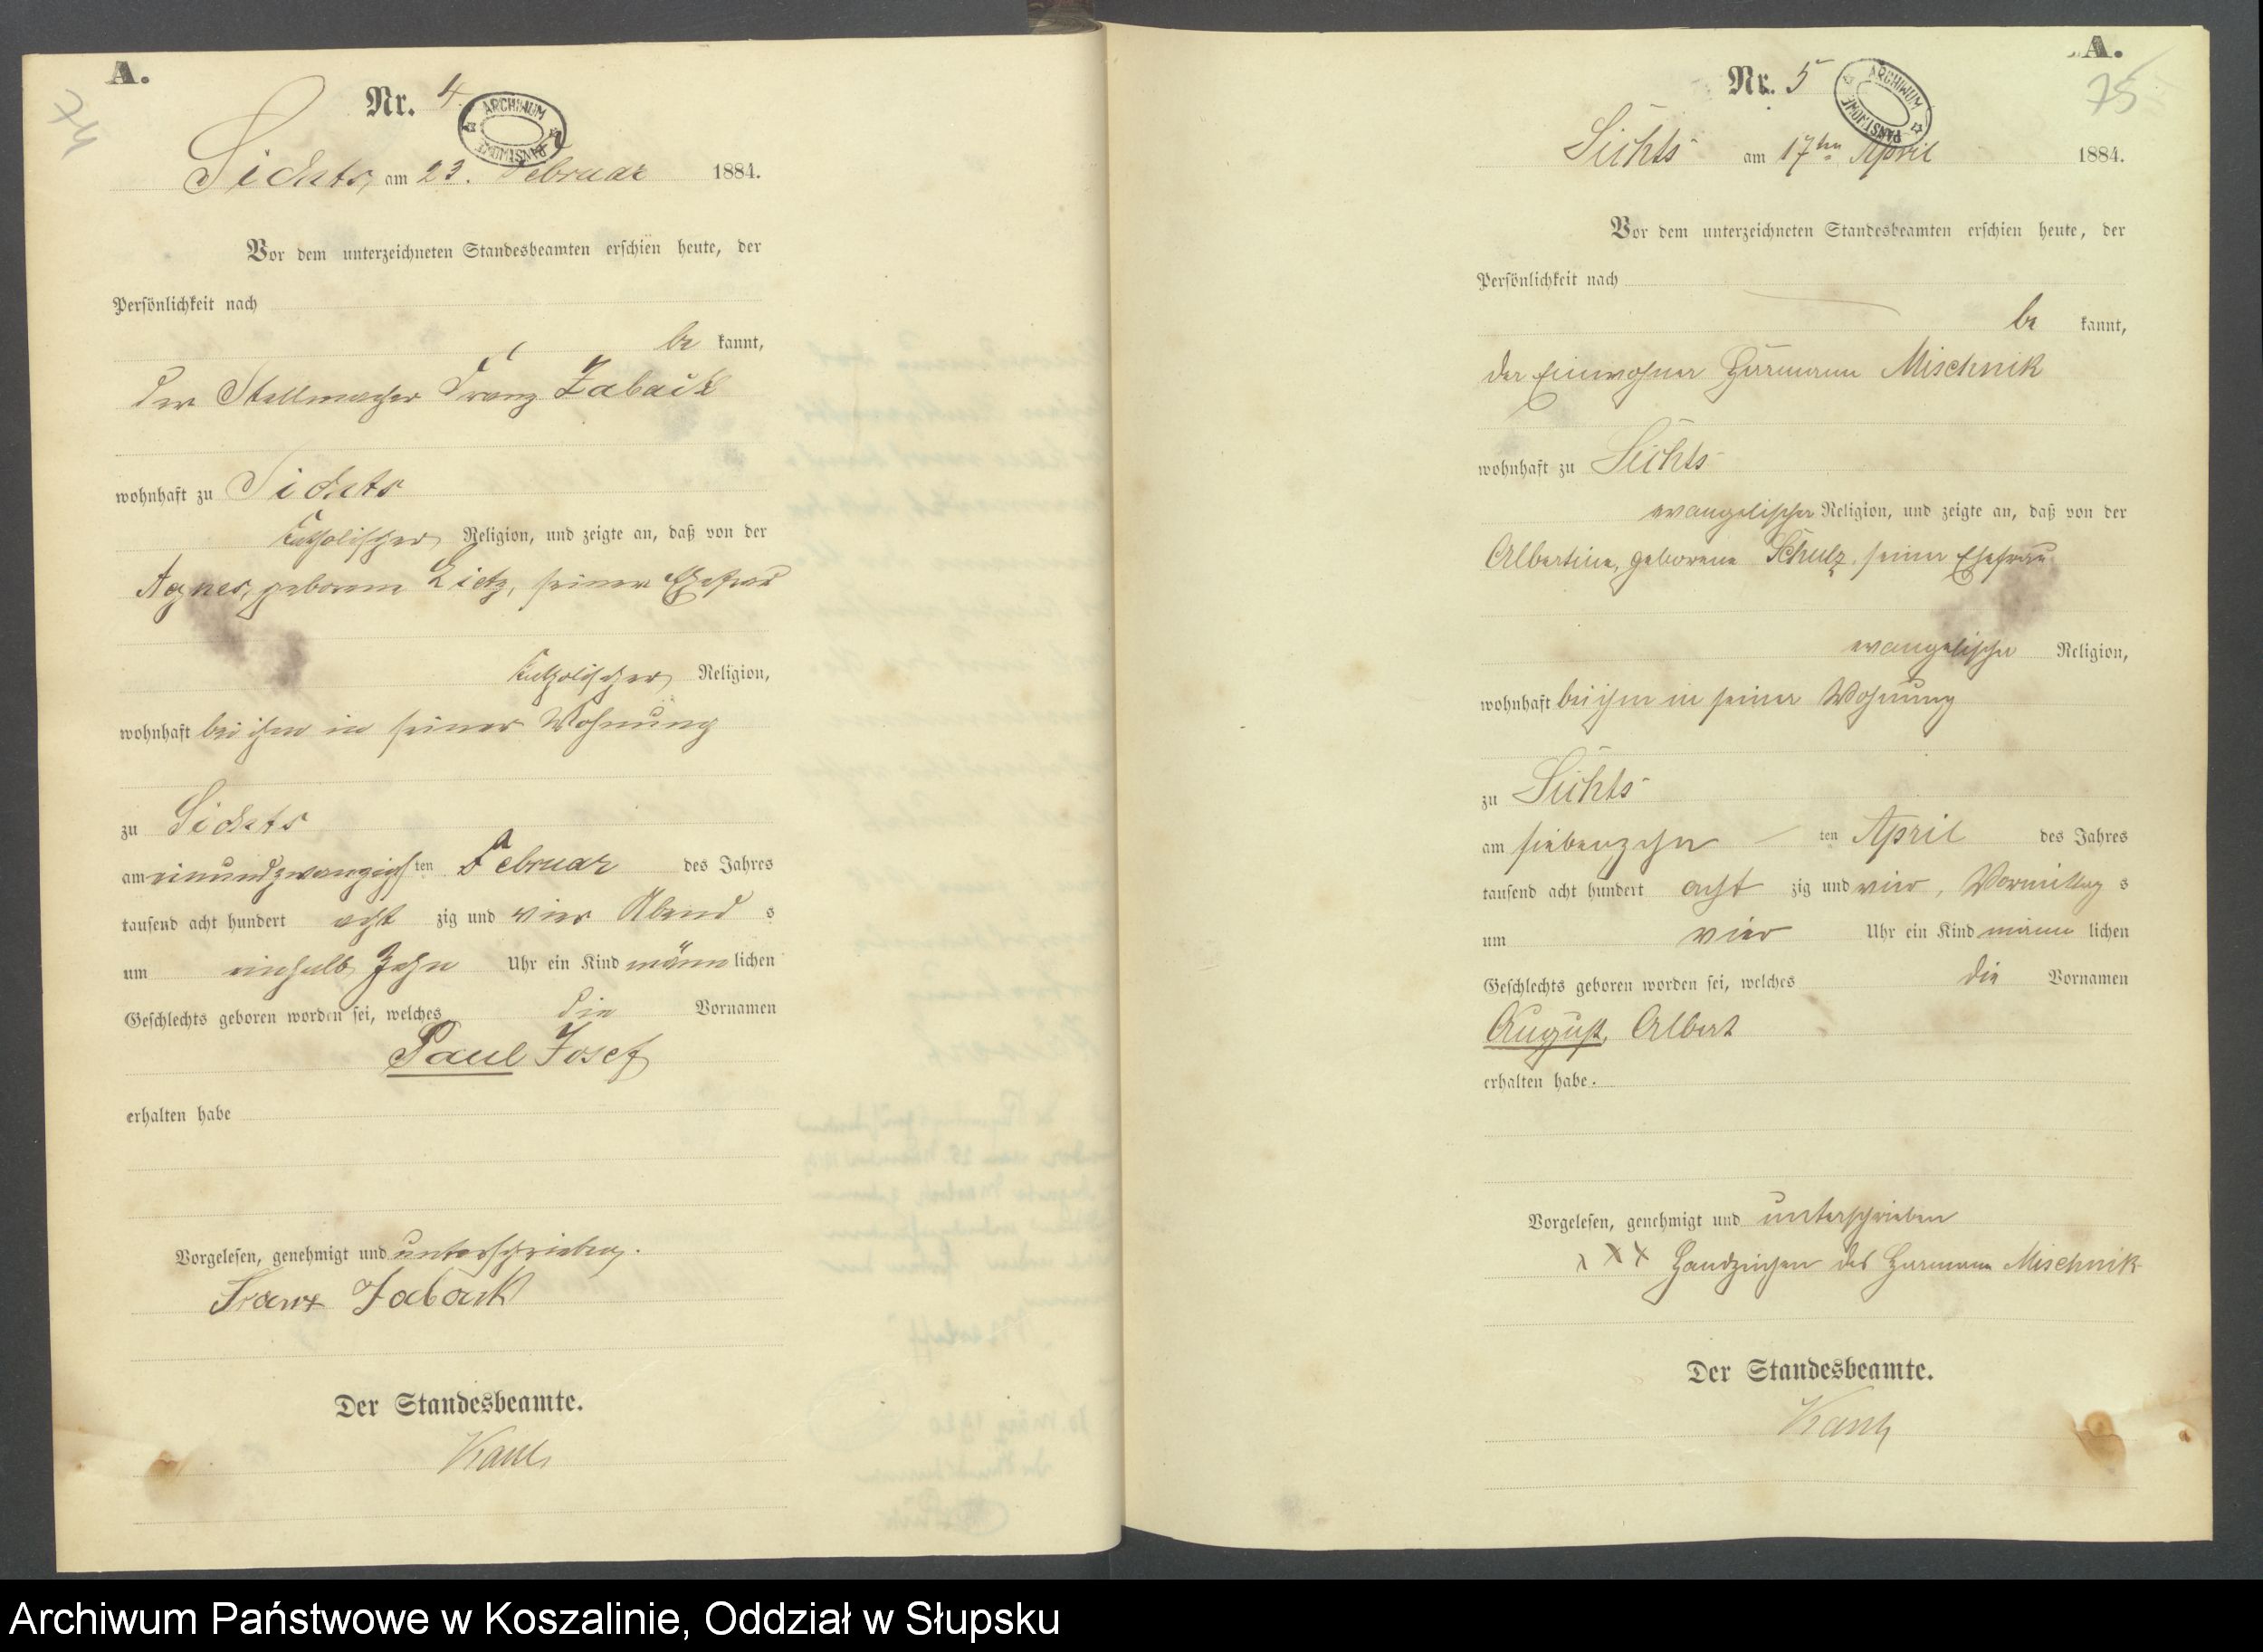 A.
74
Nr. 4.
ARCHIWUM PAŃSTWOWE
Sichts, am 23. Februar 1884.
Vor dem unterzeichneten Standesbeamten erschien heute, der
Persönlichkeit nach
be kannt,
der Stellmacher Franz Zaback
wohnhaft zu Sichts
katholischer Religion, und zeigte an, daß von der
Agnes, geborene Lietz, seiner Ehefrau
katholischer Religion,
wohnhaft bei ihm in seiner Wohnung
zu Sichts
am einundzwanzigsten Februar des Jahres
tausend acht hundert acht zig und vier Abend s
um einhalb Zehn Uhr ein Kind männlichen
Geschlechts geboren worden sei, welches die Vornamen
Paul Josef
erhalten habe
Vorgelesen, genehmigt und unterschrieben.
Franz Zaback
Der Standesbeamte.
A.
75
Nr. 5
ARCHIWUM PAŃSTWOWE
Sichts am 17ten April 1884.
Vor dem unterzeichneten Standesbeamten erschien heute, der
Persönlichkeit nach
be kannt,
der Einwohner Herrmann Mischnik
wohnhaft zu Sichts
evangelischer Religion, und zeigte an, daß von der
Albertine, geborene Schulz, seiner Ehefrau
evangelischer Religion,
wohnhaft bei ihm in seiner Wohnung
zu Sichts
am siebenzehn ten April des Jahres
tausend acht hundert acht zig und vier, Vormittag s
um vier Uhr ein Kind männ lichen
Geschlechts geboren worden sei, welches die Vornamen
August, Albert
erhalten habe.
Vorgelesen, genehmigt und unterschrieben
xxx Handzeichen des Herrmann Mischnik
Der Standesbeamte.
Archiwum Państwowe w Koszalinie, Oddział w Słupsku